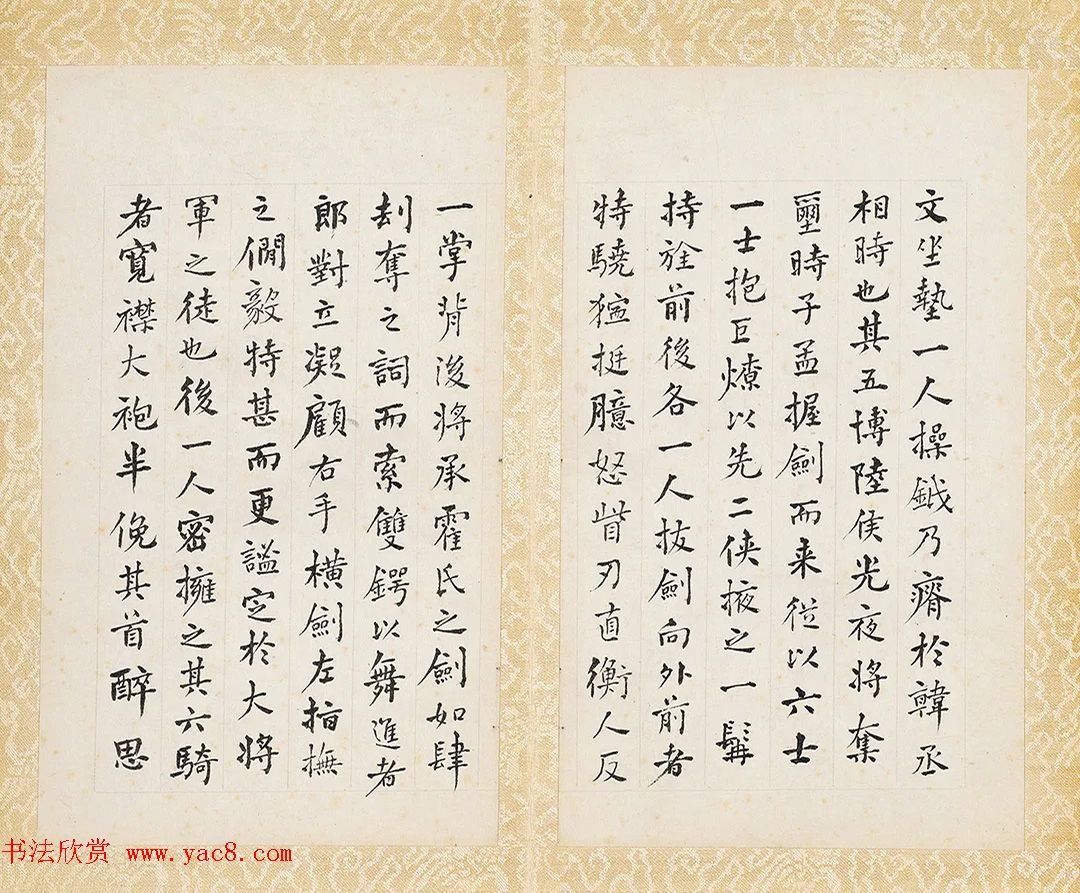 文坐墊一人操鉞乃瘠於韓丞
相時也其五博陸侯光夜將奪
璽時子孟握劍而来從以六士
一士抱巨燎以先二侠掖之一髯
持旌前後各一人拔劍向外前者
特驍獰挺臆怒眥刃直衡人反
一掌背後將承霍氏之劍如肆
刦奪之詞而索雙鍔以舞進者
郎對立凝顧右手橫劍左指撫
之僩毅特甚而更謐定於大將
軍之徒也後一人密擁之其六騎
者寬襟大袍半俛其首醉思
书法欣赏 www.yac8.com